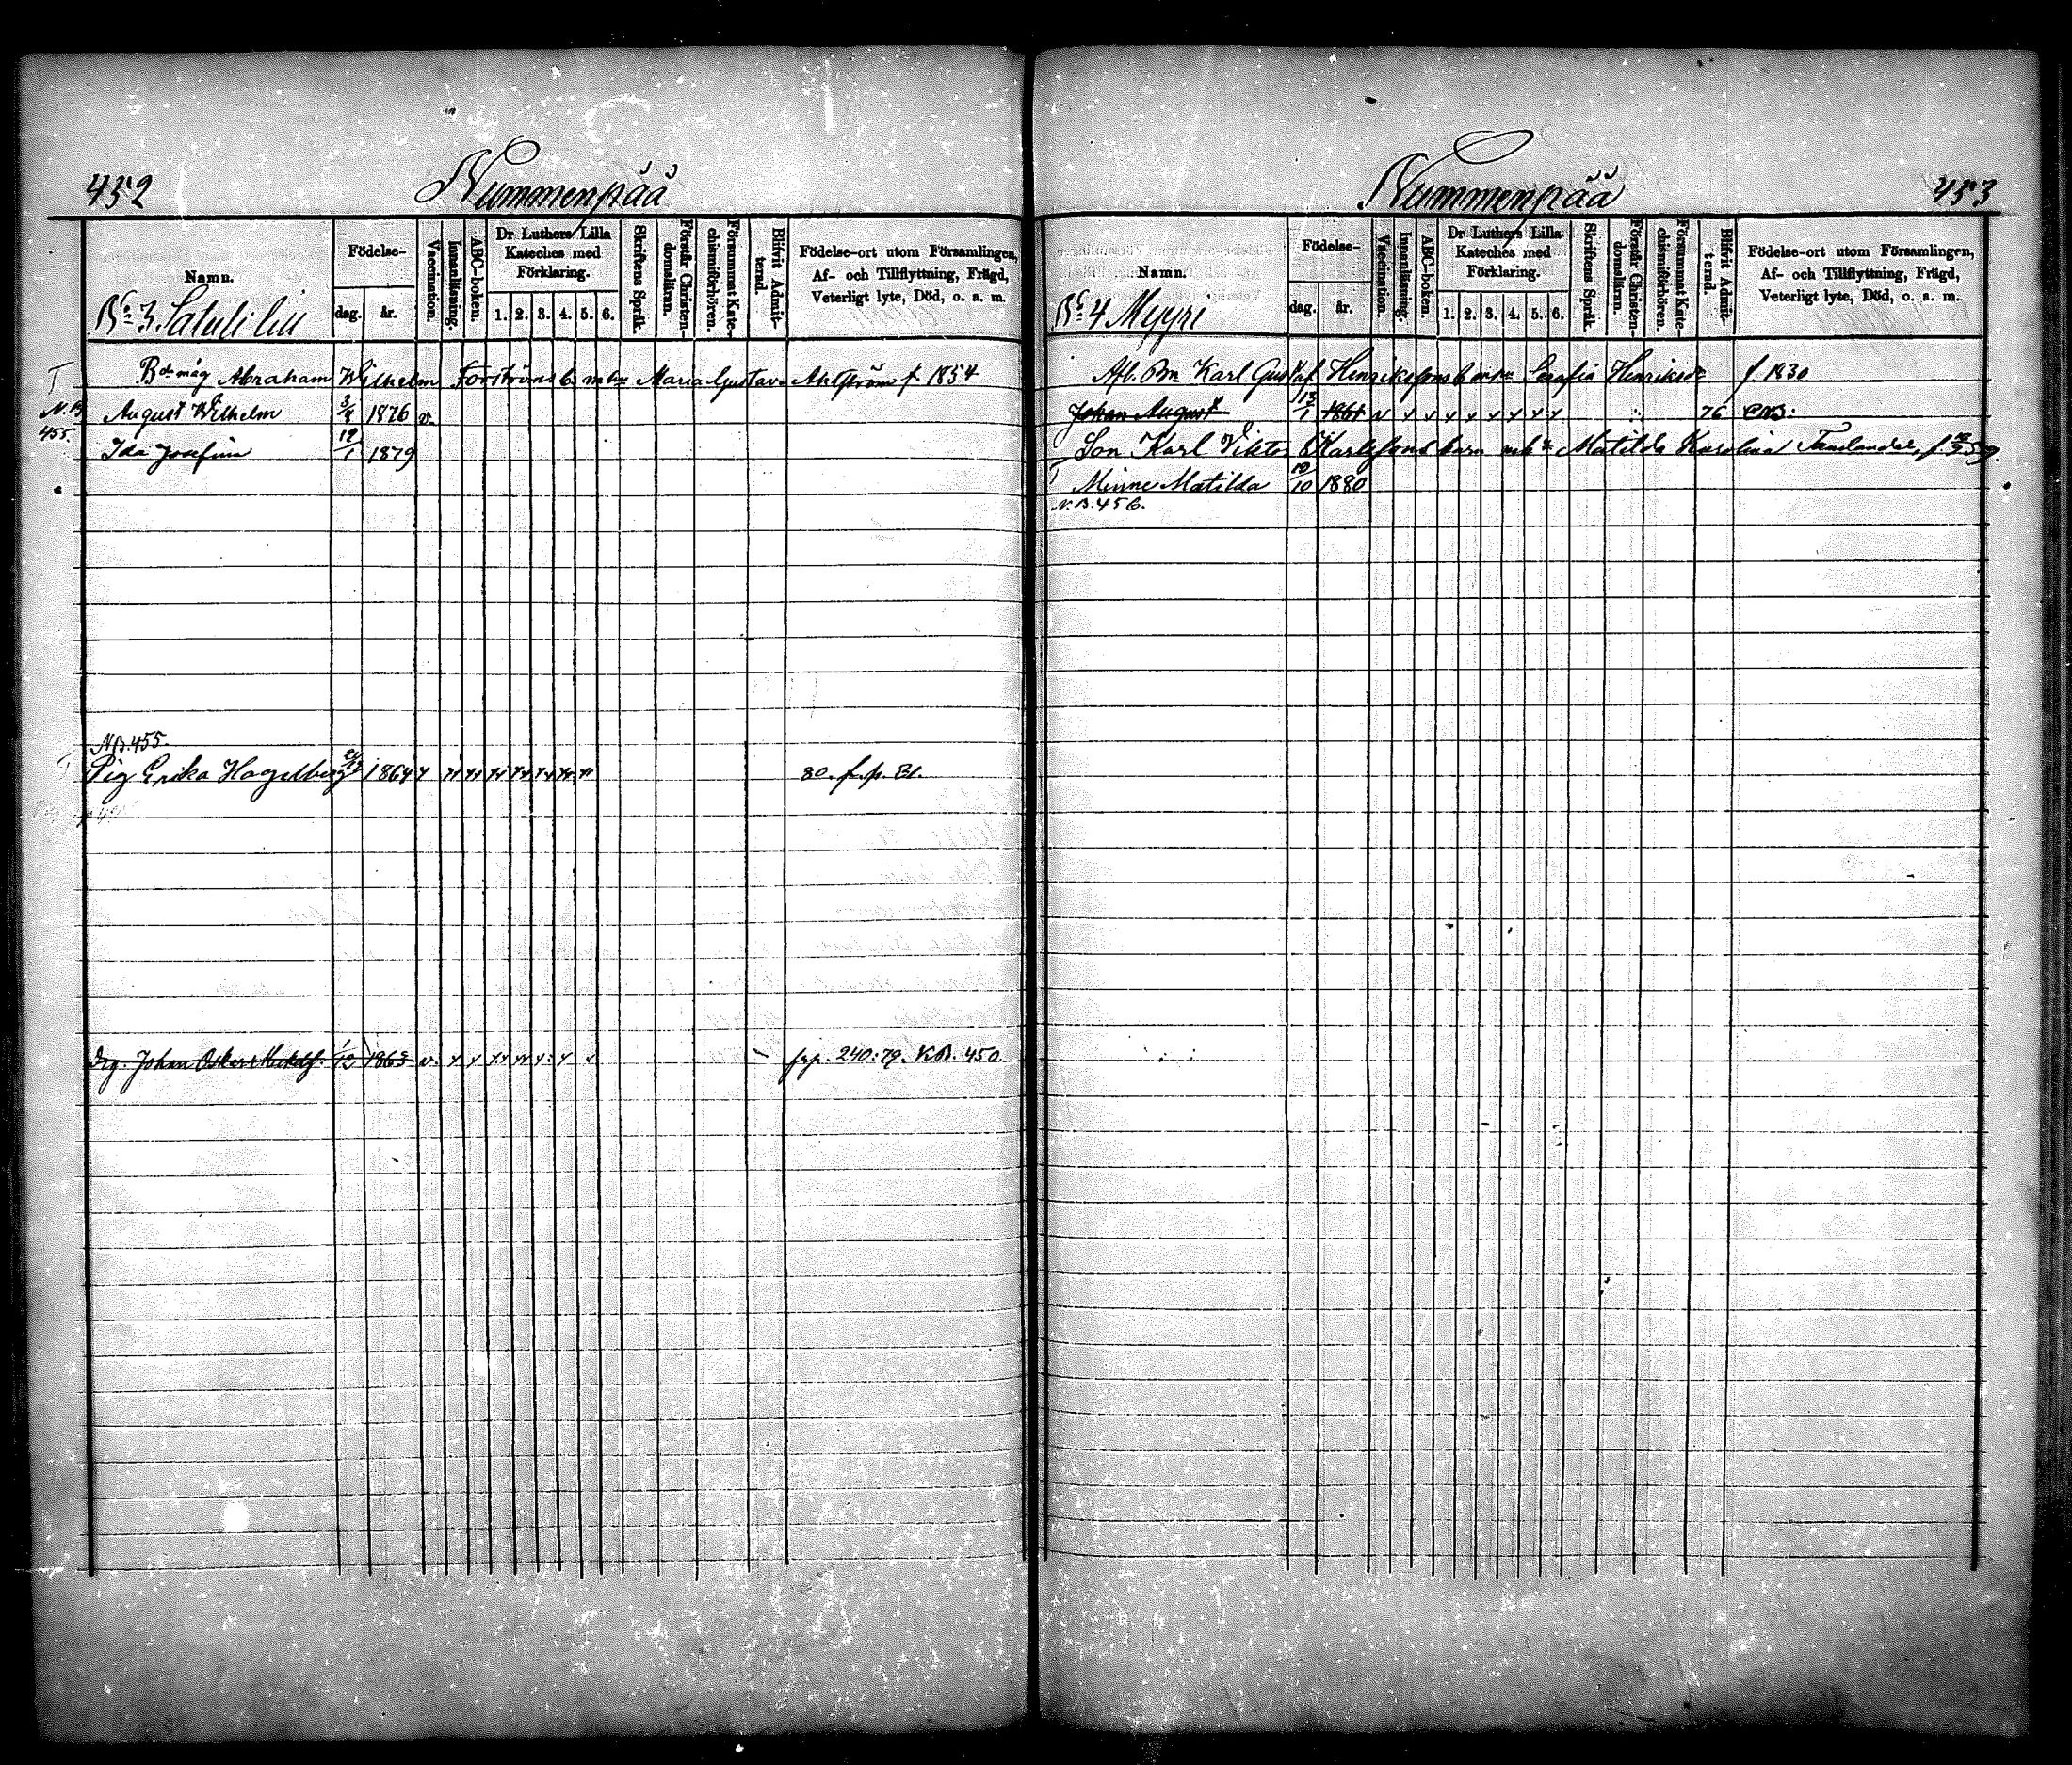 452
Nummenpää
Namn.
Födelse-
dag.
år.
Vaccination.
Innanläsning.
ABC-boken.
Dr Luthers Lilla
Kateches med
Förklaring.
1. 2. 3. 4. 5. 6.
Skriftens Språk.
Förstår Christen-
domsläran.
Försummat Kate-
chismiförhören.
Blifvit Admit-
terad.
Födelse-ort utom Församlingen,
Af- och Tillflyttning, Frägd,
Veterligt lyte, Död, o. s. m.
No 3
Abraham Wilhelm Forströms b. m. h. Maria Gustava Ahlström f. 1854
N.B.
August Wilhelm 3/8 1876 v.
455.
Ida Josefina 19/1 1879
N.B. 455.
Pig Erika Hagelberg 1864 80. f. p. 81.
Drg. Johan Oskar 1/12 1863 v. frp. 240:79. KB. 450.
Nummenpää
453
Namn.
Födelse-
dag.
år.
Vaccination.
Innanläsning.
ABC-boken.
Dr Luthers Lilla
Kateches med
Förklaring.
1. 2. 3. 4. 5. 6.
Skriftens Språk.
Förstår Christen-
domsläran.
Försummat Kate-
chismiförhören.
Blifvit Admit-
terad.
Födelse-ort utom Församlingen,
Af- och Tillflyttning, Frägd,
Veterligt lyte, Död, o. s. m.
No 4 Myyri
Afl. Bn Karl Gustaf Henrikssons b. m. h. Serafia Henriksdr f 1830
Johan August 13/1 1861 v 76
Son Karl Viktor Karlssons barn m h Matilda Karolina
Minne Matilda 19/10 1880
N.B. 456.